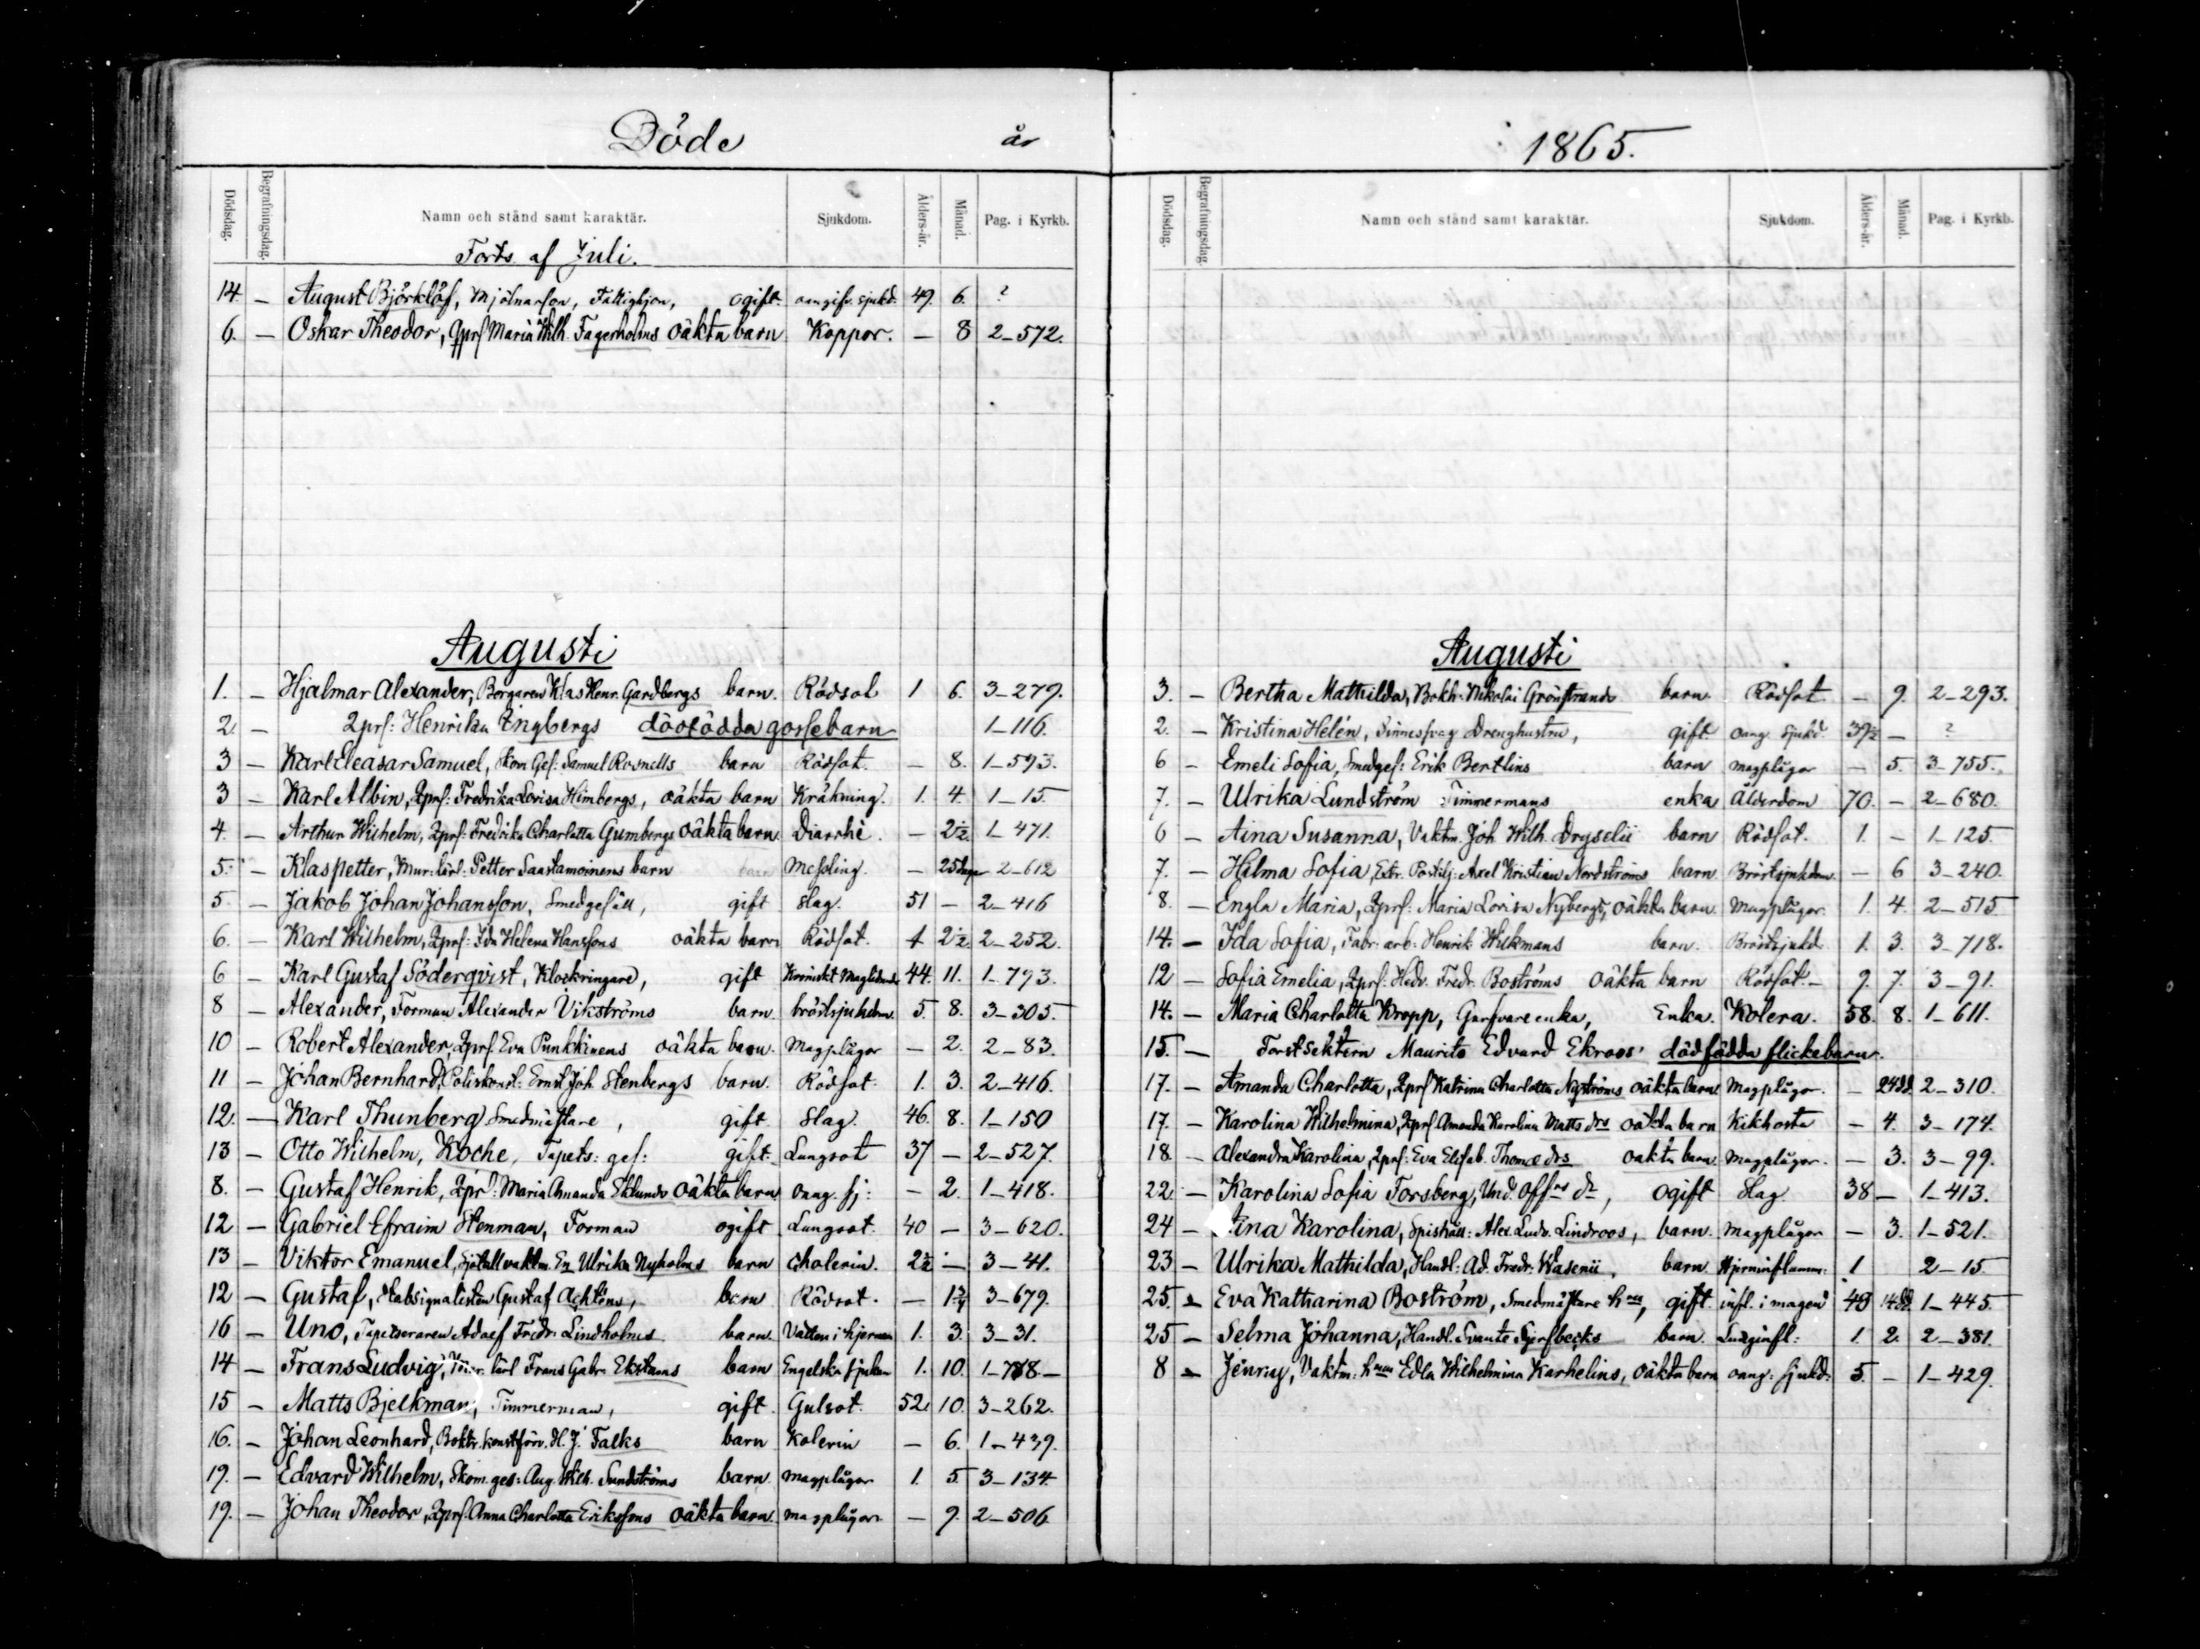 Döde år
Dödsdag. Begrafningsdag. Namn och stånd samt karaktär. Sjukdom. Ålders-år. Månad. Pag. i Kyrkb.
Forts af Juli.
14 — August Björklöf, Mjölnarson, Fattighjon, ogift. oangifv. sjukd. 49. 6. ?
6. — Oskar Theodor, Qprs Maria Wilh. Fagerholms oäkta barn Koppor. — 8 2–572.
Augusti
1. — Hjalmar Alexander, Borgaren Klas Henr. Gardbergs barn. Rödsot 1 6. 3–279.
2. — Qprs: Henrika Engbergs dödfödda gossebarn 1–116.
3 — Karl Eleasar Samuel, Skom Ges: Samuel Rosnells barn Rödsot. — 8. 1–593.
3 — Karl Albin, Qprs: Fredrika Lovisa Himbergs, oäkta barn Kräkning. 1. 4. 1–15.
4. — Arthur Wilhelm, Qprs: Fredrika Charlotta Gumbergs oäkta barn Diarrhè. — 2½ 1–471.
5. — Klas Petter, Mur: lärl: Petter Saastamoinens barn Messling. — 25 dagar 2–612
5. — Jakob Johan Johansson, Smedgesäll, gift Slag. 51 — 2–416
6. — Karl Wilhelm, Qprs: Ida Helena Hanssons oäkta barn Rödsot. 1 2½ 2–252.
6 — Karl Gustaf Söderqvist, Klockringare, gift Kroniskt Maglidande 44. 11. 1–793.
8 — Alexander, Forman Alexander Vikströms barn. bröstsjukdom. 5. 8. 3–305.
10 — Robert Alexander, Qprs Eva Punkkinens oäkta barn. Magplågor — 2. 2–83.
11 — Johan Bernhard, Poliskonst: Ernst Joh. Stenbergs barn. Rödsot. 1. 3. 2–416.
12. — Karl Thunberg Smedmästare, gift. Slag. 46. 8. 1–150
13 — Otto Wilhelm, Koche, Tapets: ges: gift. Lungsot 37 — 2–527.
8. — Gustaf Henrik, Qprs: Maria Amanda Eklunds oäkta barn oang. sj: — 2. 1–418.
12 — Gabriel Efraim Stenman, Forman ogift Lungsot. 40 — 3–620.
13 — Viktor Emanuel, Ulrika Nyholms barn Cholerin. 2½ — 3–41.
12 — Gustaf, Stabsignalisten Gustaf Achténs, barn Rödsot. — 1¾ 3–679.
16 — Uno, Tapetseraren Adolf Fredr. Lindholms barn. Vatten i hjernan 1. 3. 3–31.
14 — Frans Ludvig, lärl Frans Gabr. Ekstams barn Engelska sjukan 1. 10. 1–718–
15 — Matts Bjelkman, Timmerman, gift. Gulsot. 52. 10. 3–262.
16. — Johan Leonhard, Boktr. konstförv. H. J. Falks barn Kolerin — 6. 1–439.
19. — Edvard Wilhelm, Skom. ges: Aug. Wilh. Sundströms barn. Magplågor 1. 5. 3–134.
19. — Johan Theodor, Qprs. Anna Charlotta Erikssons oäkta barn. magplågor. — 9. 2–506.
1865.
Dödsdag. Begrafningsdag. Namn och stånd samt karaktär. Sjukdom. Ålders-år. Månad. Pag. i Kyrkb.
Augusti
3. — Bertha Mathilda, Bokh: Nikolai Grönstrands barn. Rödsot — 9. 2–293.
2. — Kristina Helén, Sinnessvag Drenghustru, gift oang. sjukd. 39½ — ?
6 — Emeli Sofia, Smedges: Erik Bertlins barn magplågor — 5. 3–755.
7. — Ulrika Lundström Timmermans enka Ålderdom 70. — 2–680.
6 — Aina Susanna, Vaktm. Joh. Wilh. Dryselii barn Rödsot. 1. — 1–125
7. — Hilma Sofia, Extr. Postilj: Axel Kristian Nordströms barn. Bröstsjukdom. — 6 3–240.
8. — Engla Maria, Qprs: Maria Lovisa Nybergs, oäkta barn. Magplågor. 1. 4. 2–515
14. — Ida Sofia, Fabr: arb: Henrik Wikmans barn. Bröstsjukd. 1. 3. 3–718.
12 — Sofia Emelia, Qprs: Hedv. Fredr. Boströms oäkta barn Rödsot.– 9. 7. 3–91.
14. — Maria Charlotta Kropp, Garfvare enka, Enka. Kolera. 58. 8. 1–611.
15. — Forstsektern Maurits Edvard Ekroos' dödfödda flickebarn.
17. — Amanda Charlotta, Qprs Katrina Charlotta Nyströms oäkta barn Magplågor. — 24 dd. 2–310.
17. — Karolina Wilhelmina, Qprs. Amanda Karolina Matts drs oäkta barn Kikhosta — 4. 3–174.
18. — Alexandra Karolina, Qprs: Eva Elisab. Thomæ drs oäkta barn. Magplågor. — 3. 3–99.
22. — Karolina Sofia Forsberg, Und. Offrs dr, ogift Slag 38 — 1–413.
24 — ina Karolina, Spishåll: Alex. Ludv. Lindroos, barn. Magplågor — 3. 1–521.
23 — Ulrika Mathilda, Handl: Ad. Fredr. Wasenii, barn Hjerninflamm: 1 2–15
25. — Eva Katharina Boström, Smedmästare hru, gift infl. i magen 49 14 dd. 1–445
25 — Selma Johanna, Handl. Svante Sjerfbecks barn. Lunginfl: 1. 2. 2–381.
8 — Jenny, Vaktm: hru Edla Wilhelmina Karhelins, oäkta barn oang: sjukd: 5. — 1–429.